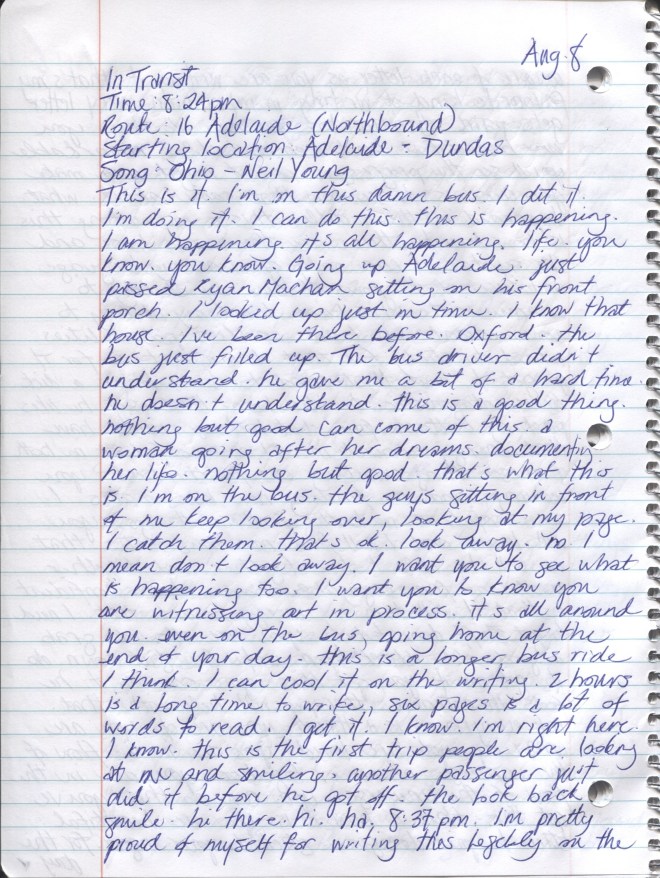 Aug. 8
In Transit
Time: 8:24pm
Route: 16 Adelaide (Northbound)
Starting location: Adelaide - Dundas
Song: Ohio - Neil Young
This is it. I'm on this damn bus. I did it.
I'm doing it. I can do this. this is happening.
I am happening. it's all happening. life. you
know. you know. Going up Adelaide. just
passed Ryan Machan sitting on his front
porch. I looked up just in time. I know that
house. I've been there before. Oxford. the
bus just filled up. The bus driver didn't
understand. he gave me a bit of a hard time.
he doesn't understand. this is a good thing.
nothing but good can come of this. a
woman going after her dreams. documenting
her life. nothing but good. that's what this
is. I'm on the bus. the guys sitting in front
of me keep looking over, looking at my page.
I catch them. that's ok. look away. no I
mean don't look away. I want you to see what
is happening too. I want you to know you
are witnessing art in process. it's all around
you. even on the bus, going home at the
end of your day. this is a longer bus ride
I think. I can cool it on the writing. 2 hours
is a long time to write, six pages is a lot of
words to read. I get it. I know. I'm right here.
I know. this is the first trip people are looking
at me and smiling. another passenger just
did it before he got off. the look back
smile. hi there. hi. ha. 8:37pm. I'm pretty
proud of myself for writing this legibly on the